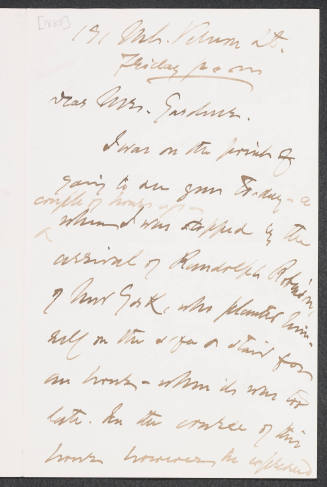 [1885]
131 Mt. Vernon St.
Friday p.m.
Dear Mrs. Gardner.
I was on the point of
going to see you today - a
couple of hours ago -
when I was stopped by the
arrival of Randolph Robinson,
of New York, who planted him-
self on the sofa & staid for
an hour - when it was too
late. In the course of this
hour however he explained